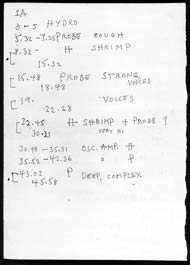 1A
0-5 HYDRO
5.32-7.35 PROBE COUGH
8.31- H SHRIMP
15.32
15.48 PROBE STRONG,
18.48 VOICES
19. VOICES
22.28
22.45 H SHRIMP + PROBE?
30.23 VERY HI
30.41-35.31 OSC. AMP. H
35.52-42.36 " P
43.02 P DEEP, COMPLEX
45.58